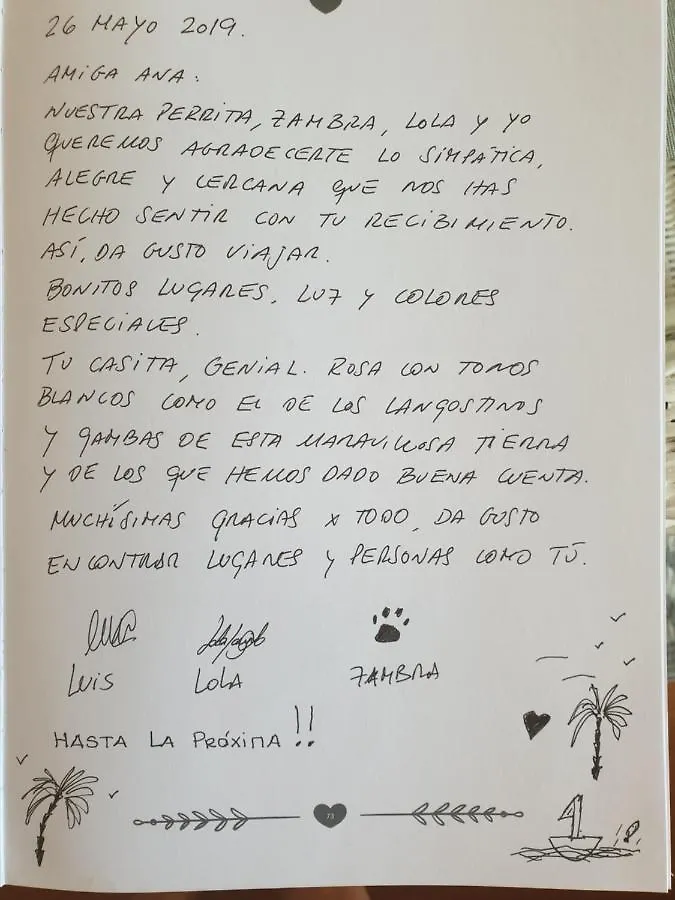 26 MAYO 2019.
AMIGA ANA:
NUESTRA PERRITA, ZAMBRA, LOLA Y YO
QUEREMOS AGRADECERTE LO SIMPÁTICA,
ALEGRE Y CERCANA QUE NOS HAS
HECHO SENTIR CON TU RECIBIMIENTO.
ASÍ, DA GUSTO VIAJAR.
BONITOS LUGARES, LUZ Y COLORES
ESPECIALES.
TU CASITA, GENIAL. ROSA CON TONOS
BLANCOS COMO EL DE LOS LANGOSTINOS
Y GAMBAS DE ESTA MARAVILLOSA TIERRA
Y DE LOS QUE HEMOS DADO BUENA CUENTA.
MUCHÍSIMAS GRACIAS X TODO, DA GUSTO
ENCONTRAR LUGARES Y PERSONAS COMO TÚ.
LUIS LOLA ZAMBRA
HASTA LA PRÓXIMA!!
73